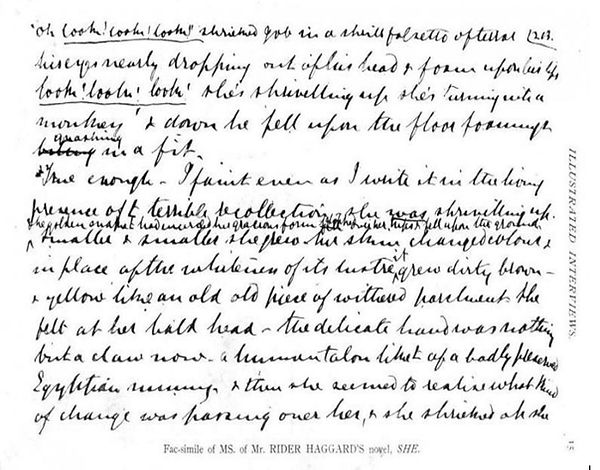 "Oh look! look! look!" shrieked Job in a shrill falsetto of terror
his eyes nearly dropping out of his head & foam upon his lips
look! look! look! she's shrivelling up she's turning into a
monkey' & down he fell upon the floor foaming &
gnashing
in a fit.
True enough – I faint even as I write it in the living
presence of that terrible recollection, she was shrivelling up.
the golden snake that had encircled her gracious form her hips & fell upon the ground
smaller & smaller she grew her skin changed colour &
in place of the whiteness of its lustre it grew dirty brown –
& yellow like an old old piece of withered parchment she
felt at her bald head – the delicate hand was nothing
but a claw now – a human talon like that of a badly preserved
Egyptian mummy & then she seemed to realise what kind
of change was passing over her, & she shrieked ah she
ILLUSTRATED INTERVIEWS.
Fac-simile of MS. of Mr. RIDER HAGGARD'S novel, SHE.